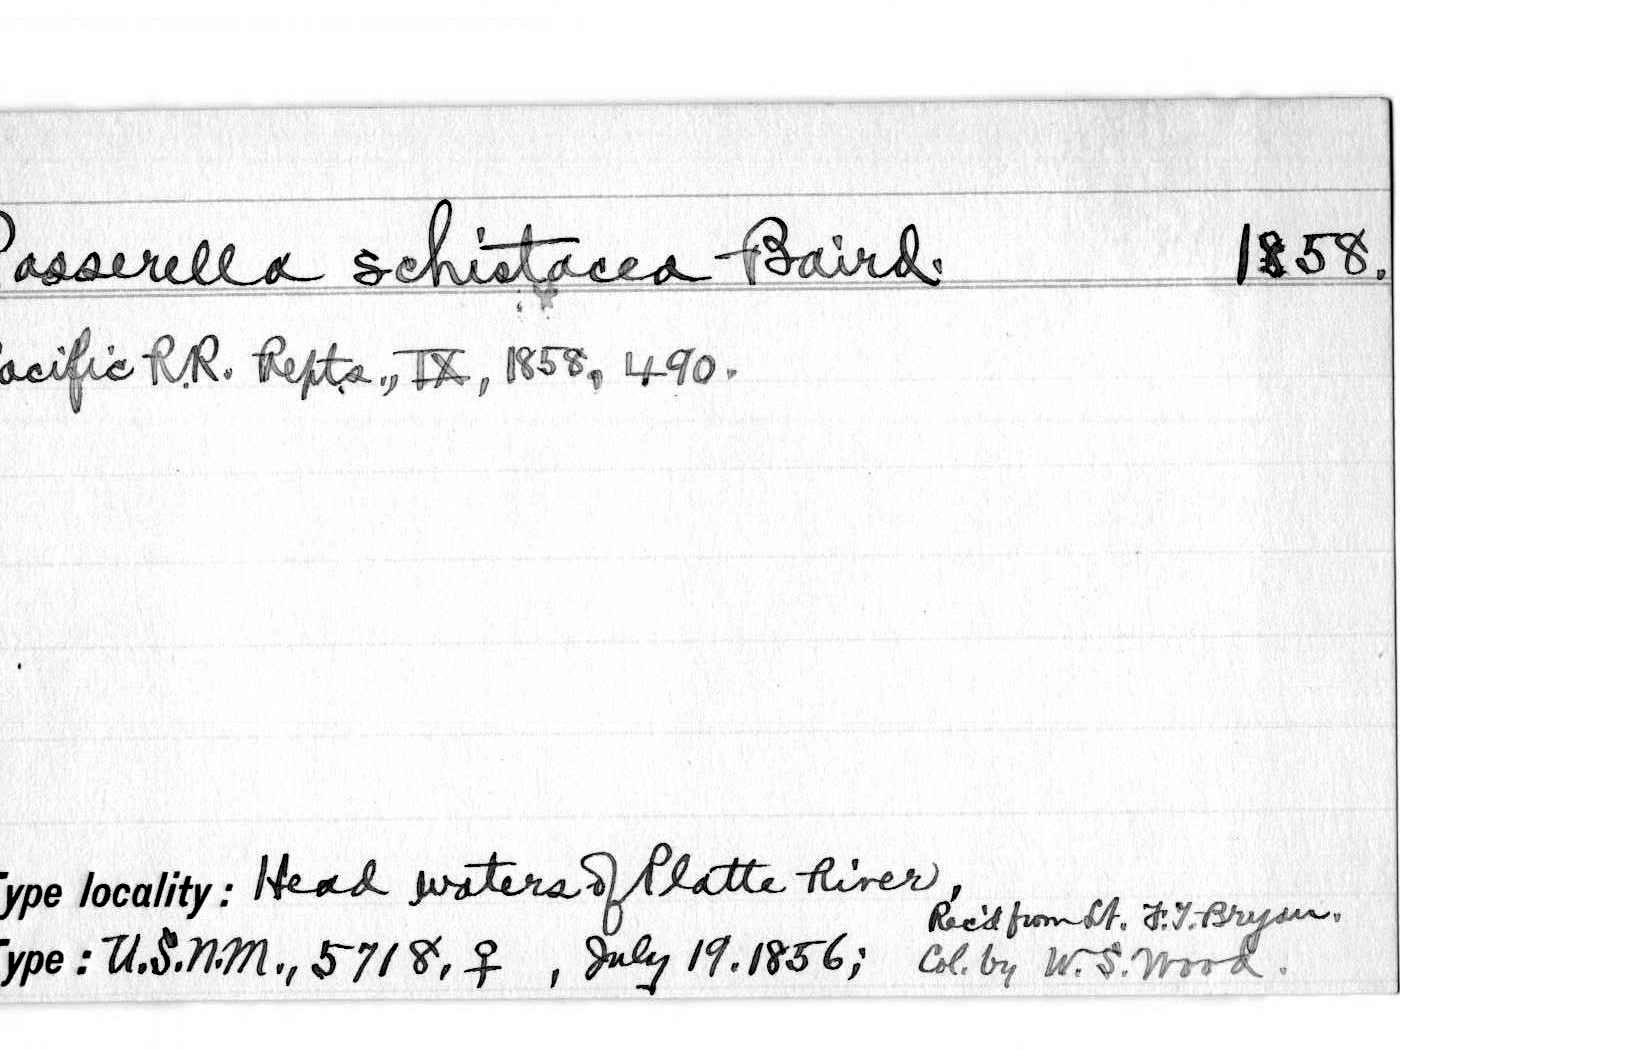 Passerella schistacea Baird. 1858.
Pacific R.R. Repts., IX, 1858, 490.
Type locality: Head waters of Platte River,
Rec'd from Lt. F.T. Bryan.
Type: U.S.N.M., 5718, ♀, July 19. 1856; Col. by W. S. Wood.